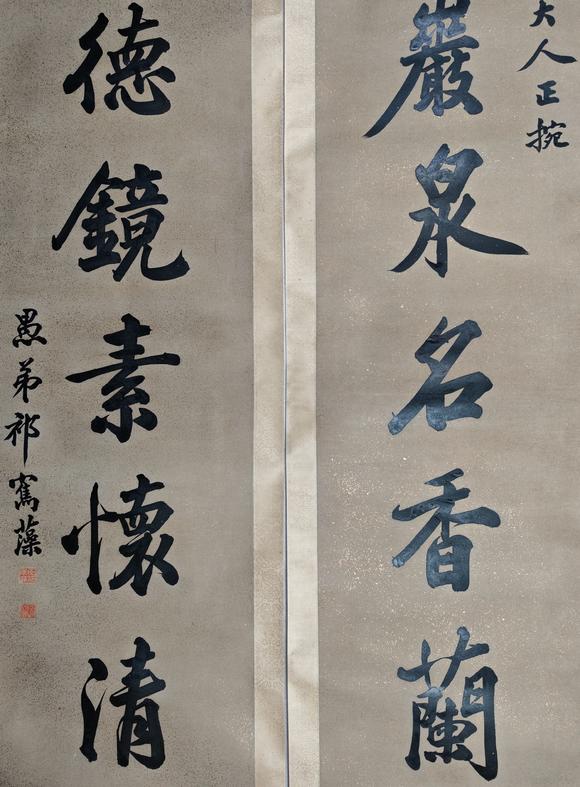 大人正捥
巖泉名香蘭
德鏡素懷清
愚弟祁寯藻